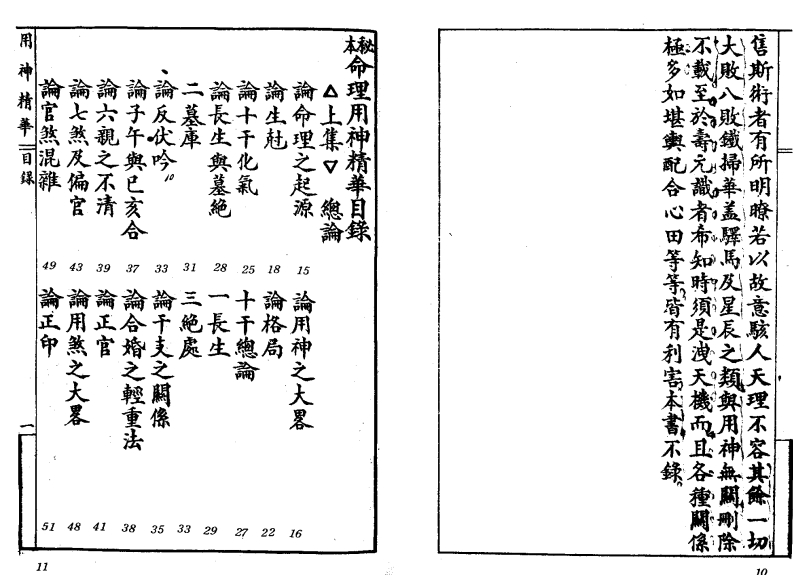 售斯術者有所明瞭若以故意駭人天理不容其餘一切
大敗八敗鐵掃華盖驛馬及星辰之類與用神無關刪除
不載至於壽元識者布知時須是洩天機而且各種關係
極多如堪輿配合心田等等皆有利害本書不錄
10
秘本命理用神精華目錄
△上集▽ 總論
論命理之起源 15 論用神之大畧 16
論生尅 18 論格局 22
論十干化氣 25 十干總論 27
論長生與墓絕 28 一長生 29
二墓庫 31 三絕處 33
論反伏吟 33 論干支之關係 35
論子午與巳亥合 37 論合婚之輕重法 38
論六親之不清 39 論正官 41
論七煞及偏官 43 論用煞之大畧 48
論官煞混雜 49 論正印 51
用神精華 目錄 一
11